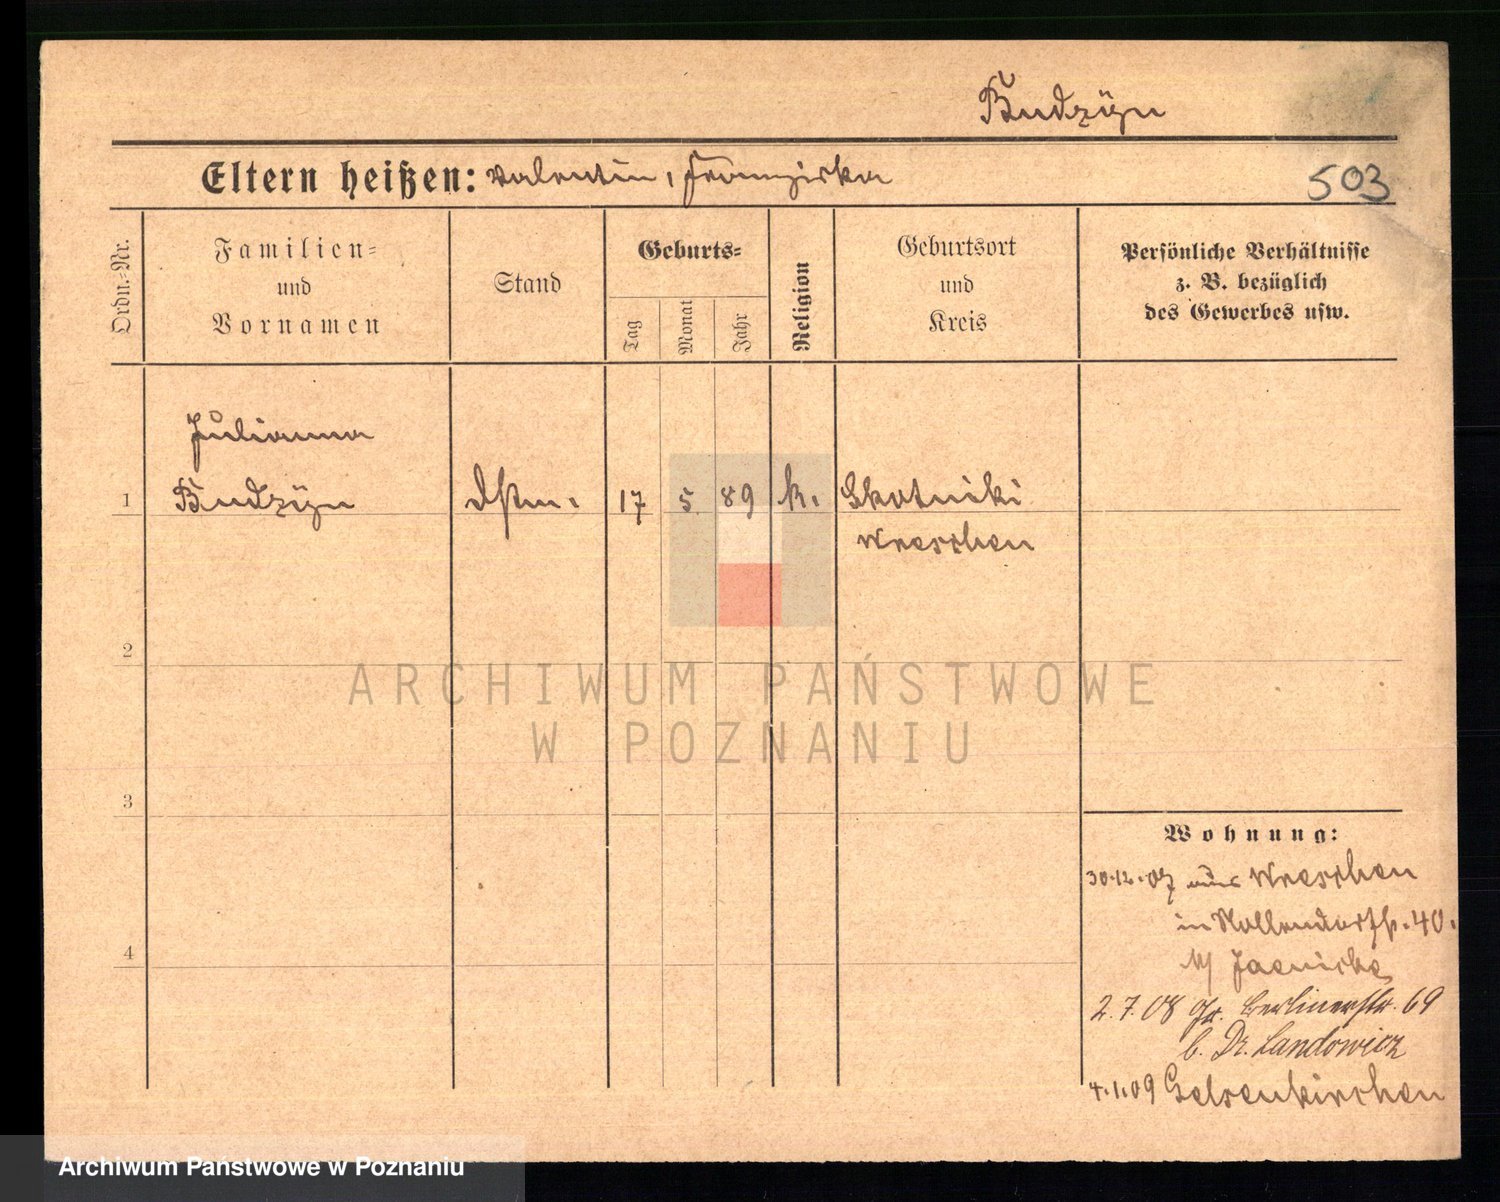 Budzÿn
Eltern heißen: Valentin, Franziska
503
Ordn.=Nr.
Familien=
und
Vornamen
Stand
Geburts=
Tag
Monat
Jahr
Religion
Geburtsort
und
Kreis
Persönliche Verhältnisse
z. B. bezüglich
des Gewerbes usw.
Julianna
1 Budzÿn Dstm. 17 5 89 k. Skotniki
Wreschen
2
ARCHIWUM PAŃSTWOWE
W POZNANIU
3
Wohnung:
30.12.07 aus Wreschen
in Nollendorfstr. 40.
4
b/ Jaenicke
2.7.08 Gr. Berlinerstr. 69
b. Dr. Landowicz
4.1.09 Gelsenkirchen
Archiwum Państwowe w Poznaniu